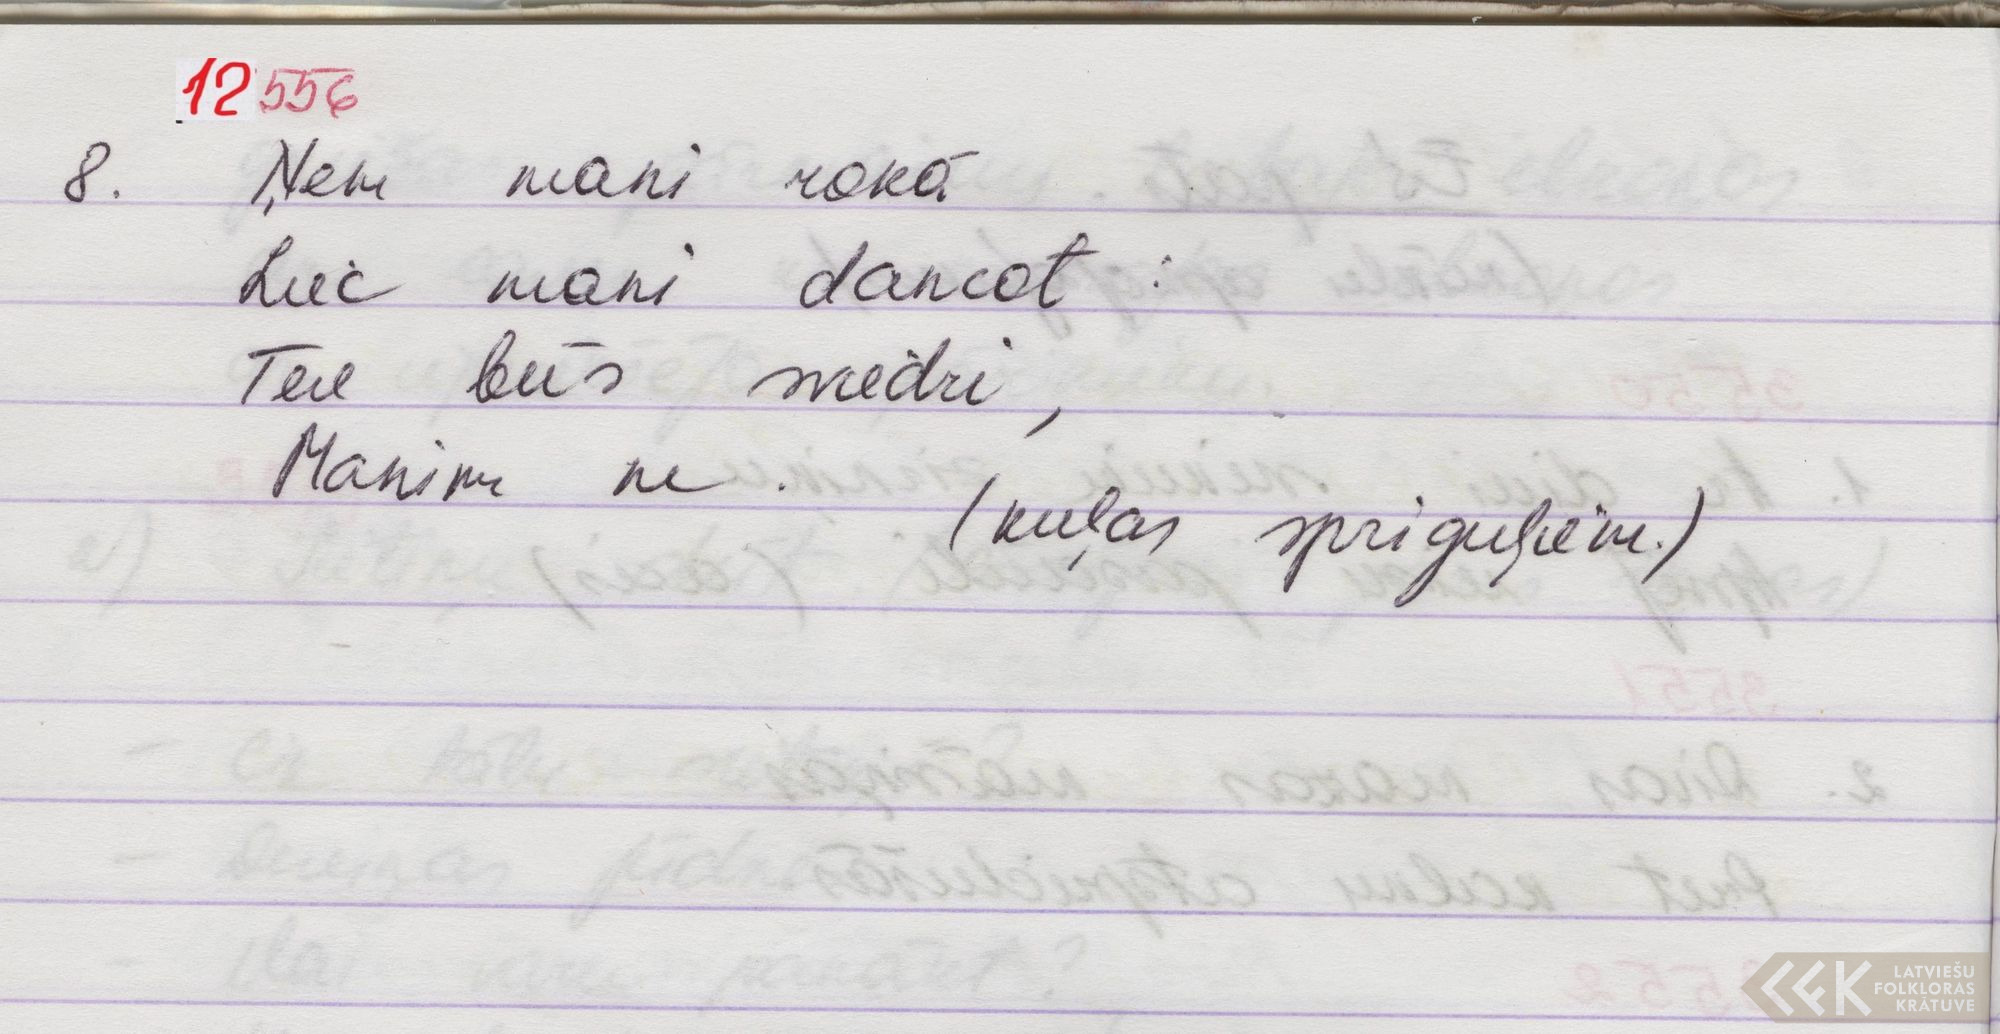 12556
8. Ņem mani rokā
Liec mani dancot :
Tev būs sviedri,
Manim ne.
(kuļas spriguļiem.)
LATVIEŠU
FOLKLORAS
KRĀTUVE